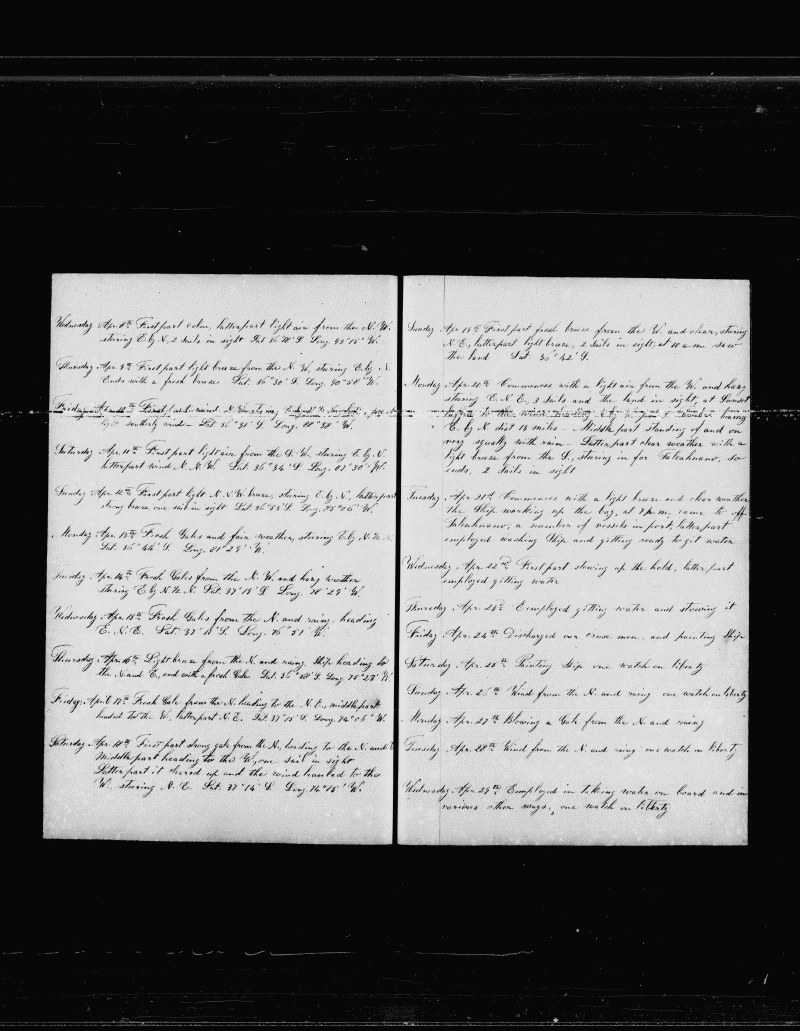 Wednesday Apr. 8th First part calm, latter part light air from the N. W.
stering E by N, 2 Sails in sight Lat 36° 18' S. Long. 93° 15' W.
Thursday Apr. 9th First part light breeze from the N. W. stering E by N.
Ends with a fresh breeze Lat. 36° 30' S. Long. 90° 58' W.
Friday
light southerly wind Lat 36° 31' S. Long. 88° 38' W.
Saturday Apr. 11th First part light air from the S. W. stering E by N
latter part wind N. N. W. Lat. 36° 34' S Long. 87° 30' W.
Sunday Apr. 12th First part light N. N. W. breeze, stering E by N, latter part
strong breeze one sail in sight Lat 36° 53' S Long. 85° 06' W.
Monday Apr. 13th Fresh Gales and fair weather, stering E by N. ½ N
Lat. 36° 44' S. Long. 81° 29' W.
Tuesday Apr. 14th Fresh Gales from the N. W. and hazy weather
stering E by N. ½ N. Lat. 37° 19' S Long. 78° 29' W.
Wednesday Apr. 15th Fresh Gales from the N. and rainy, heading
E. N. E. Lat 37° 11' S. Long. 76° 51' W.
Thursday Apr. 16th Light breeze from the N. and rainy, Ship heading to
the N. and E, end with a fresh Gale Lat. 36° 58' S Long. 75° 28' W
Friday, April 17th Fresh Gale from the N. heading to the N. E., middle part
headed to the W, latter part N. E. Lat 37° 15' S. Long. 74° 06' W.
Saturday Apr. 18th First part strong gale from the N, heading to the N. and E
Middle part heading to the W, one sail in sight
Latter part it cleared up and the wind hauled to the
W. stering N. E. Lat. 37° 14' S Long. 74° 15' W.
Sunday Apr. 19th First part fresh breeze from the W. and clear, stering
N. E., latter part light breeze, 2 Sails in sight, at 10 a.m. saw
the land Lat. 36° 42' S.
Monday Apr. 20th Commences with a light air from the W. and hazy
stering E. N. E, 3 Sails and the land in sight, at Sunset
bearing
E. by N dist 18 miles - Middle part standing of and on
very squally with rain - Latter part clear weather with a
light breeze from the S, stering in for Talcahuano, so
ends, 2 Sails in sight
Tuesday Apr. 21st Commences with a light breeze and clear weather
the Ship working up the bay, at 7 p.m. came to off
Talcahuano, a number of vessels in port, latter part
employed washing Ship and gitting ready to git water
Wednesday Apr. 22nd First part stowing up the hold, latter part
employed gitting water
Thursday Apr. 23d Eemployed gitting water and stowing it
Friday Apr. 24th Discharged our cruse men, and painting Ship
Saturday Apr. 25th Painting Ship one watch on liberty
Sunday Apr. 26th Wind from the N. and rainy one watch on liberty
Monday Apr. 27th Blowing a Gale from the N. and rainy
Tuesday Apr. 28th Wind from the N. and rainy one watch on liberty
Wednesday Apr. 29th Eemployed in taking water on board and in
various other ways, one watch on liberty